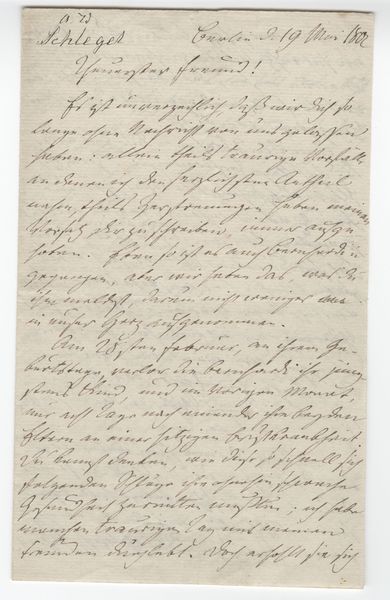 a. d.
Schlegel
Berlin d. 19 Mai 180
Theuerster Freund!
Es ist unverzeihlich, daß wir dich so
lange ohne Nachricht von uns gelassen
haben: allein theils traurige Vorfälle
an denen ich den herzlichsten Antheil
nahm, theils Zerstreuungen haben meinen
Vorsatz dir zu schreiben, immer aufge
hoben. Eben so ist es auch Bernhardi
gegangen, aber wir haben das was du
ihm meldest, darum nicht weniger
in unser Herz aufgenommen.
Am 28sten Februar, an ihrem Ge-
burtstage, verlor die Bernhardi ihr jüng
stes Kind, und im vorigen Monat,
nur acht Tage nach einander ihre beyden
Eltern an einer hitzigen Brustkrankheit.
Du kannst denken, wie diese so schnell sich
folgenden Schläge ihre ohnehin schwache
Gesundheit zerrütten mußten; ich habe
manchen traurigen Tag mit meinen
Freunden durchlebt. Doch erholt sie sich